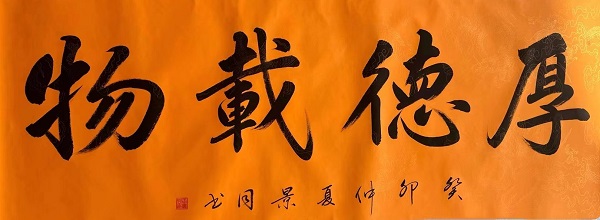 厚德載物
癸卯仲夏景同书